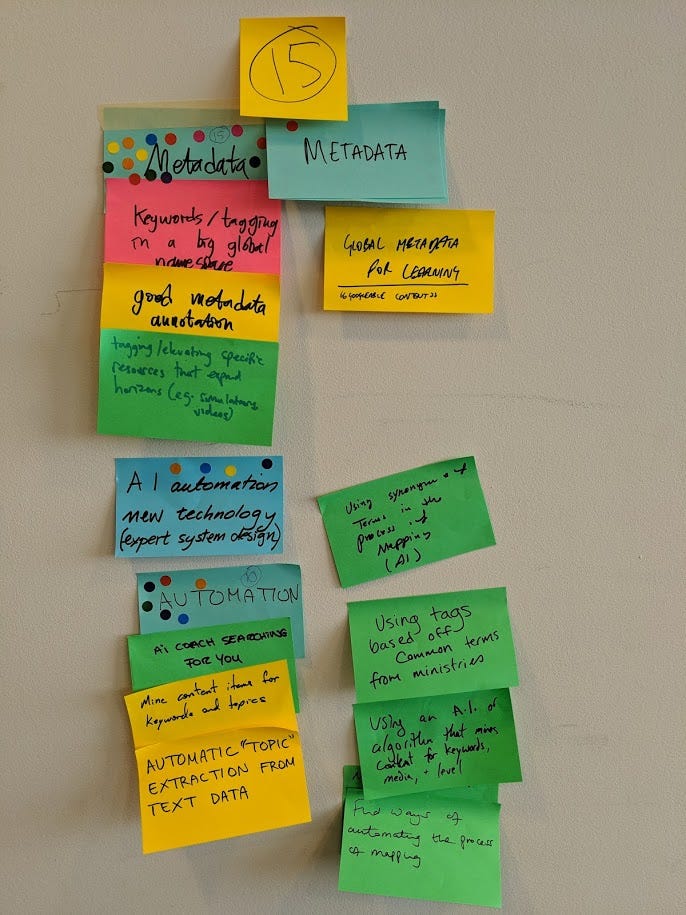 15
15
Metadata
METADATA
Keywords/tagging
in a big global
namespace
GLOBAL METADATA
FOR LEARNING
good metadata
annotation
tagging/elevating specific
resources that expand
horizons (eg. simulations,
videos)
AI automation
new technology
(expert system design)
Using synonym of
Terms in the
process of
Mapping
(AI)
10
AUTOMATION
Ai COACH SEARCHING
FOR YOU
Mine content items for
keywords and topics
AUTOMATIC "TOPIC"
EXTRACTION FROM
TEXT DATA
Using tags
based off
Common terms
from ministries
Using an A.I. or
algorithm that mines
content for keywords,
media, + level
Find ways of
automating the process
of mapping